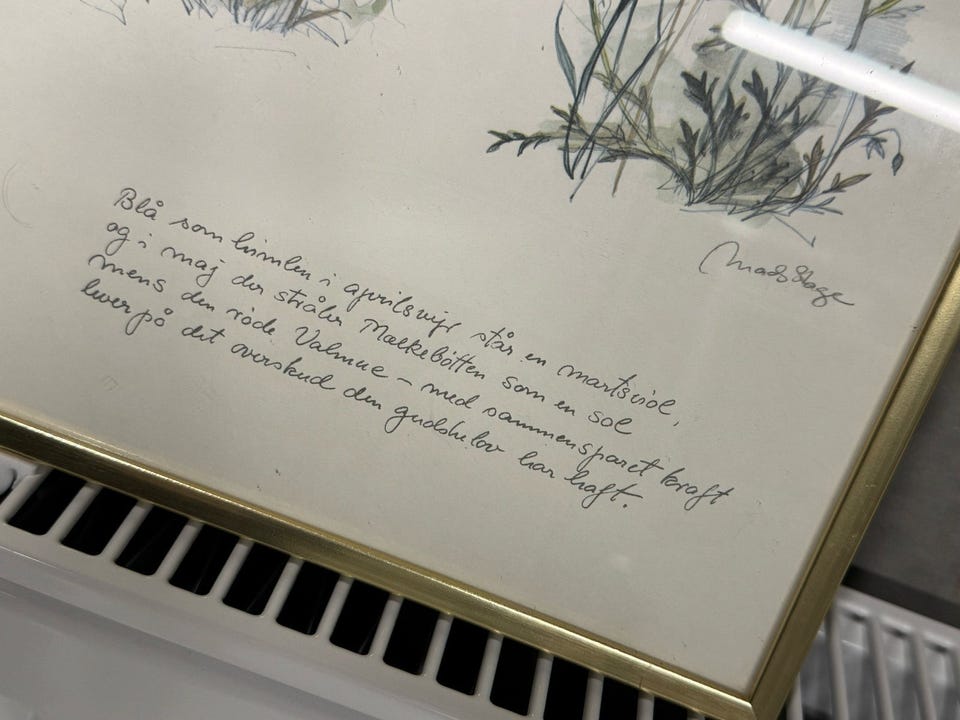 Blå som himlen i aprilsvejr står en martsviol,
og i maj der stråler Mælkebøtten som en sol
mens den røde Valmue – med sammensparet kraft
lever på det overskud den gudskelov har haft.
Mads Stage